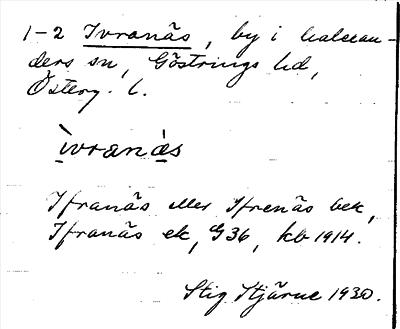 1-2 Ivranäs, by i kalsean-
ders sn, Göstrings hd,
Österg. l.
ìvranàs
Ifranäs eller Ifrenäs bek,
Ifranäs ek, G36, kb 1914.
Stig Stjärne 1930.